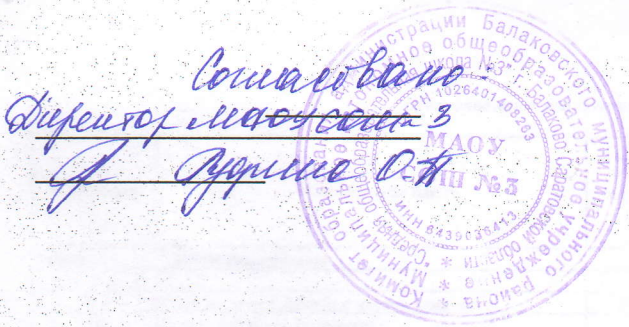 Согласовано
Директор МАОУ СОШ 3
О.А
Комитет образования администрации Балаковского муниципального района *
Муниципальное общеобразовательное учреждение *
"Средняя общеобразовательная школа №3" г. Балаково Саратовской области *
ИНН 6439036413
МАОУ
СОШ №3